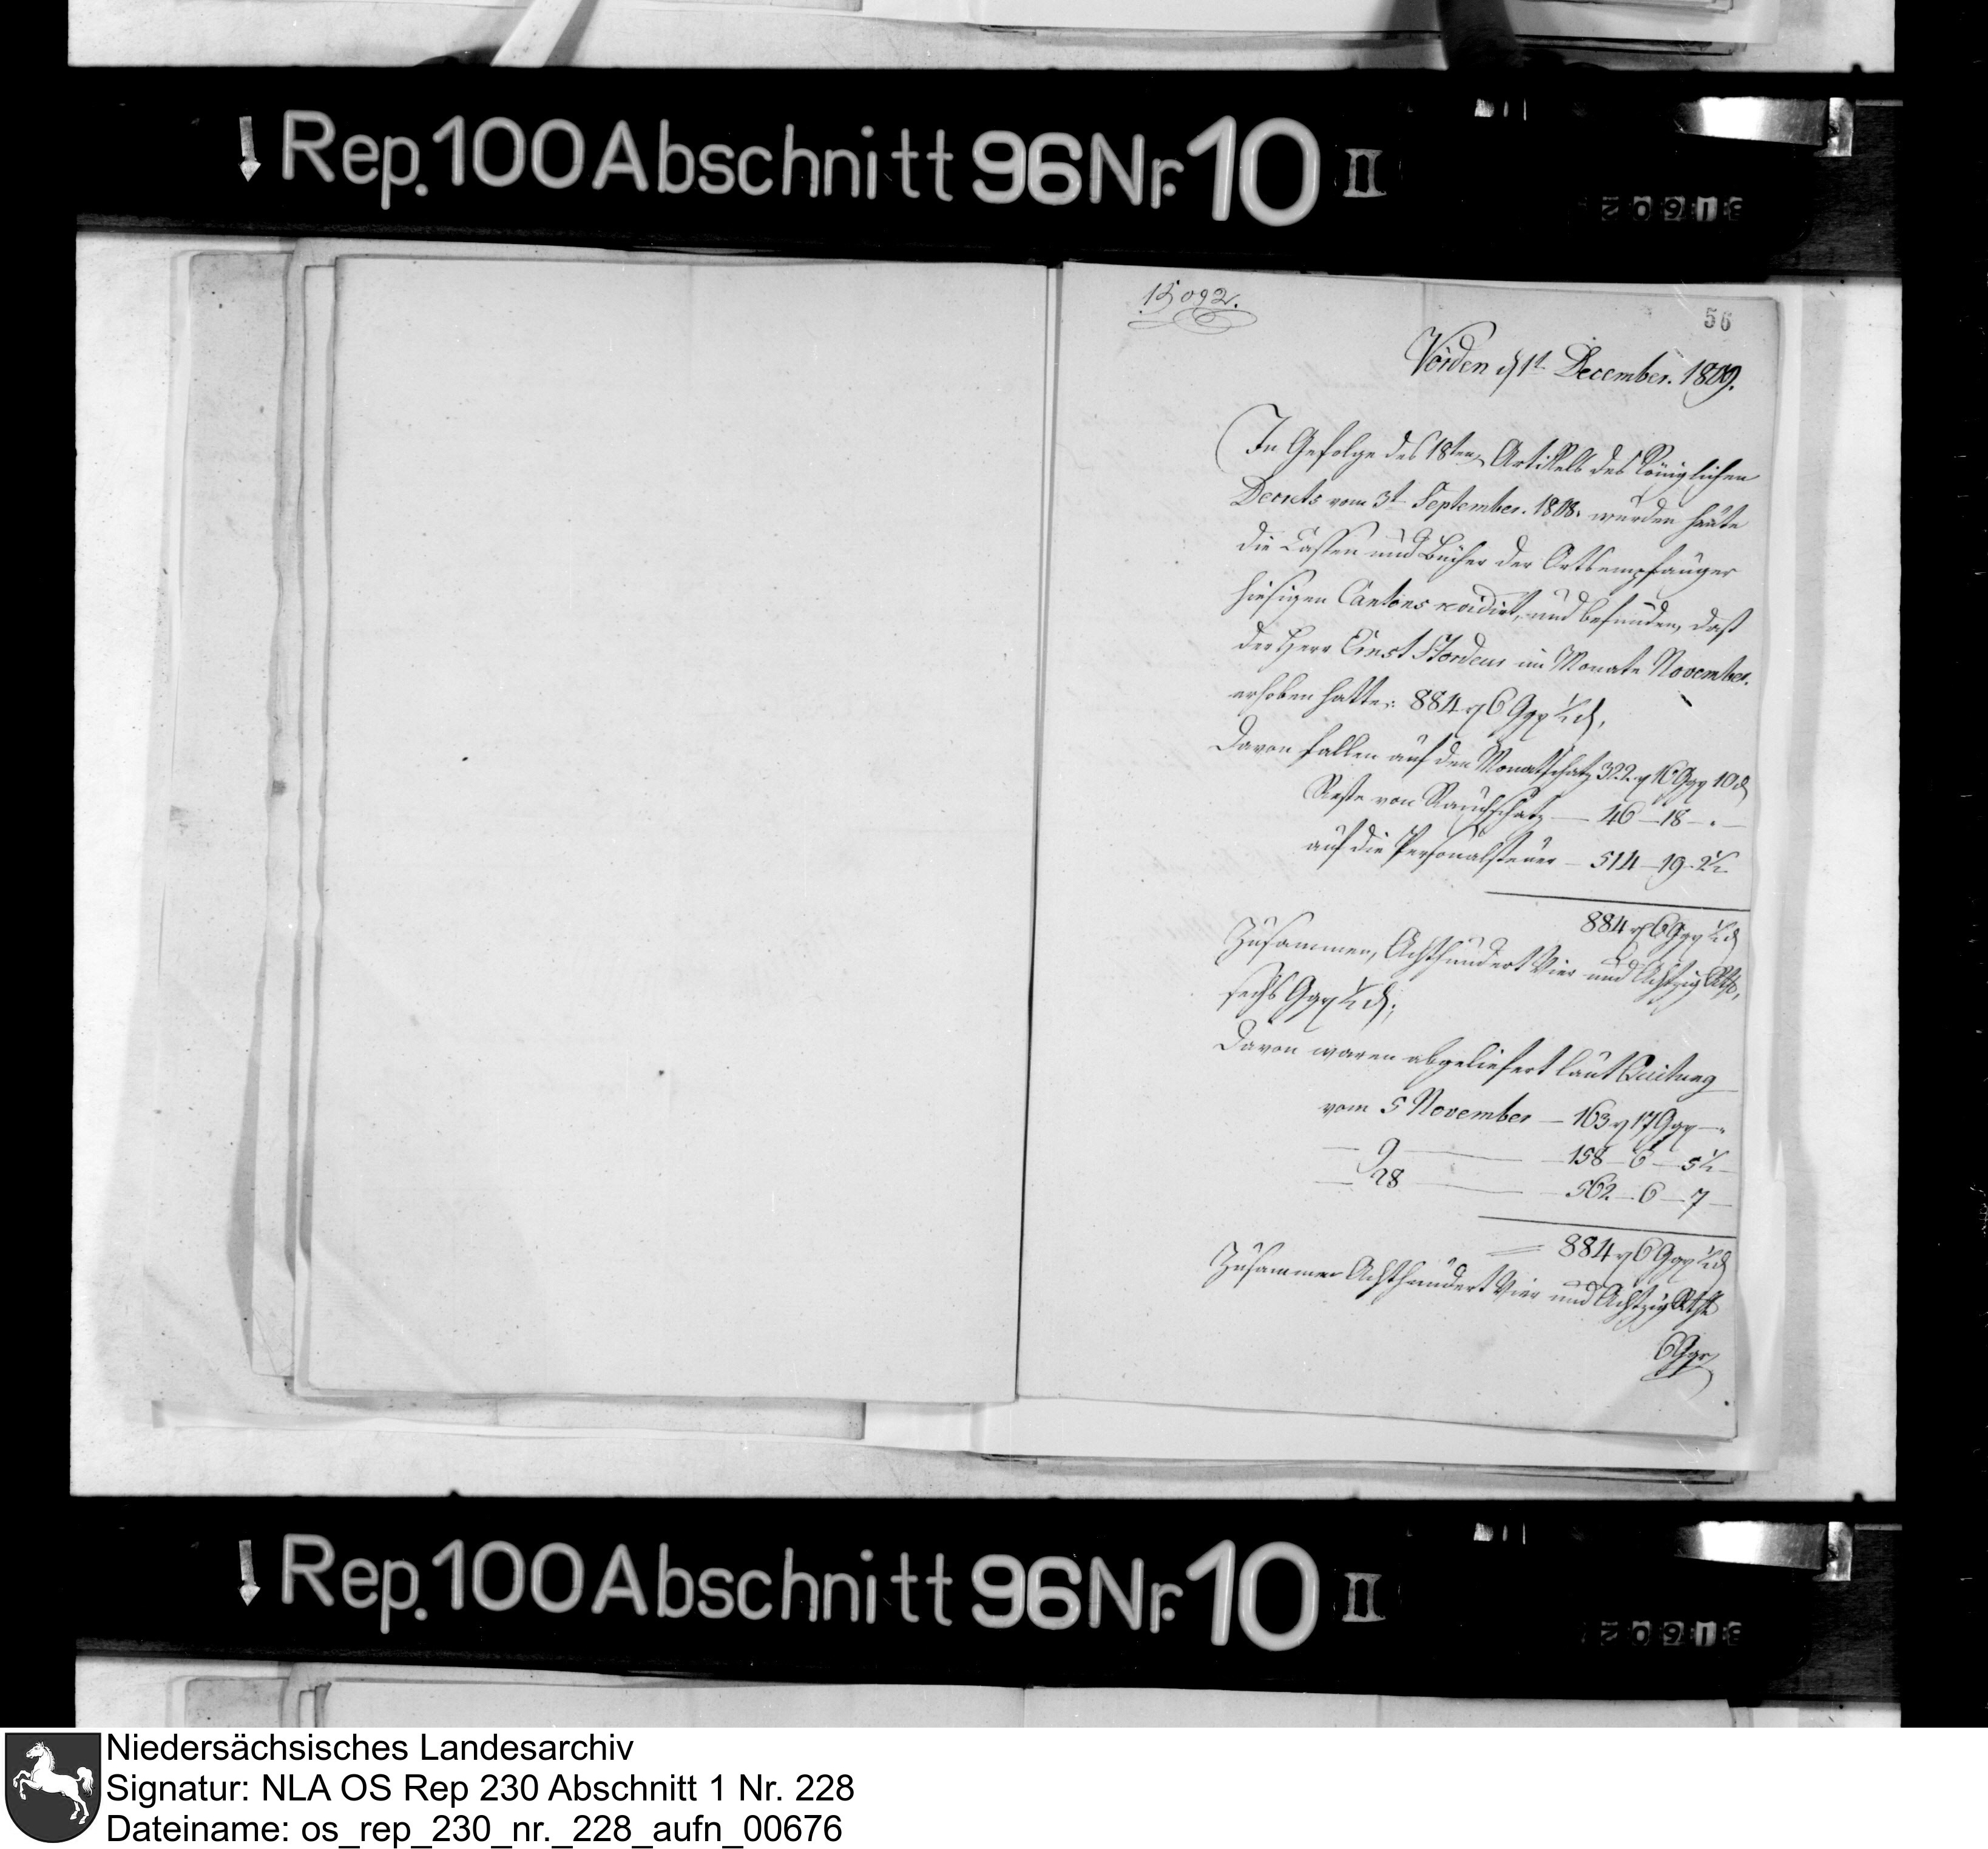 Rep. 100 Abschnitt 96 Nr. 10 II
31902
15092.
56
Vörden d 1t December. 1809.
In Gefolge des 18ten Artikels des Königlichen
Decrets vom 3t September. 1808. wurden heute
die Cassen und Bücher der Ortsempfänger
hiesigen Cantons revidirt, und befunden, daß
der Herr Ernst Stordeur im Monate November.
erhoben hatte: 884 rt 6 Ggr ½ d,
Davon fallen auf den Monatschatz 322 rt 16 Ggr 10 d
Reste von Rauchschatz — 46 — 18 — . —
auf die Personalsteuer — 514 — 19 - 2½
884 rt 6 Ggr ½ d
Zusammen, Achthundert Vier und Achtzig Rth,
sechs Ggr ½ d;
Davon waren abgeliefert laut Quitung
vom 5 November — 163 rt 17 Ggr — "
— 9 — 158 — 6 — 5½ —
— 28 — 562 — 6 — 7 —
884 rt 6 Ggr ½ d
Zusammen Achthundert Vier und Achtzig Rth
6 Ggr
Rep. 100 Abschnitt 96 Nr. 10 II
31902
Niedersächsisches Landesarchiv
Signatur: NLA OS Rep 230 Abschnitt 1 Nr. 228
Dateiname: os_rep_230_nr._228_aufn_00676